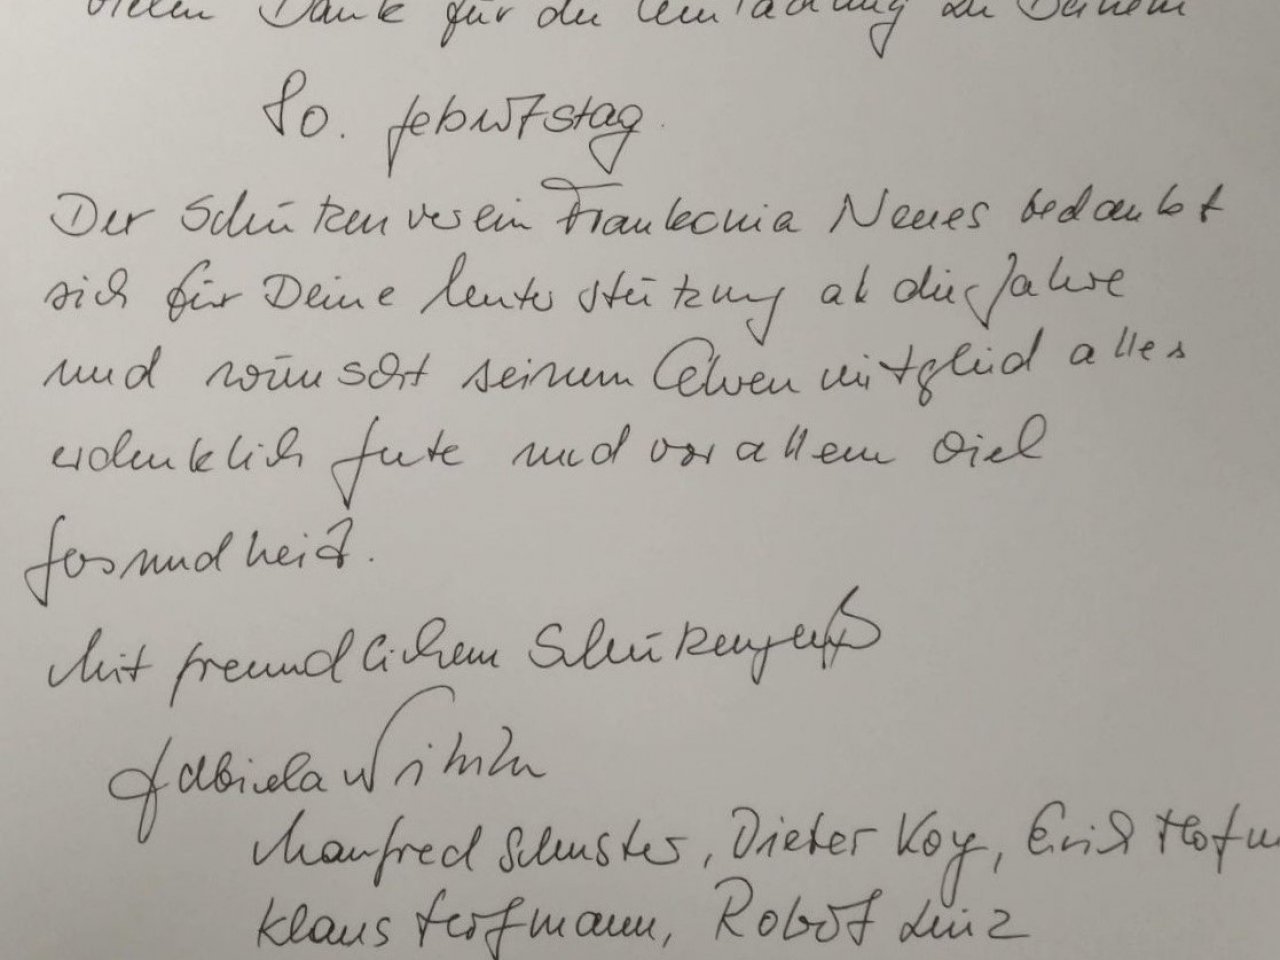 Vielen Dank für die Einladung zu Deinem
80. Geburtstag.
Der Schützenverein Frankonia Neues bedankt
sich für Deine Unterstützung all die Jahre
und wünscht seinem Ehrenmitglied alles
erdenklich Gute und vor allem viel
Gesundheit.
Mit freundlichem Schützengruß
Gabriela
Manfred Schuster, Dieter Koy, Erich Hofm
Klaus Hofmann, Robert Linz